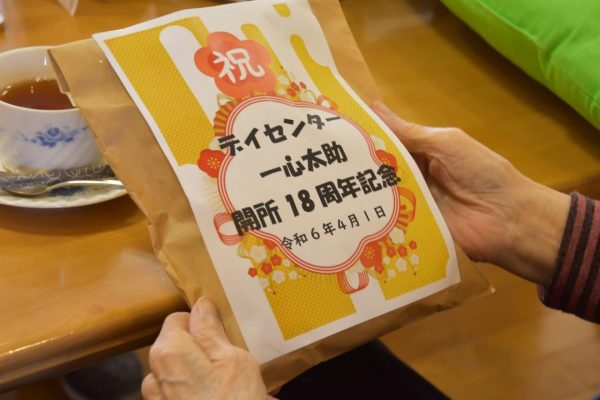 祝
デイセンター
一心太助
開所18周年記念
令和6年4月1日